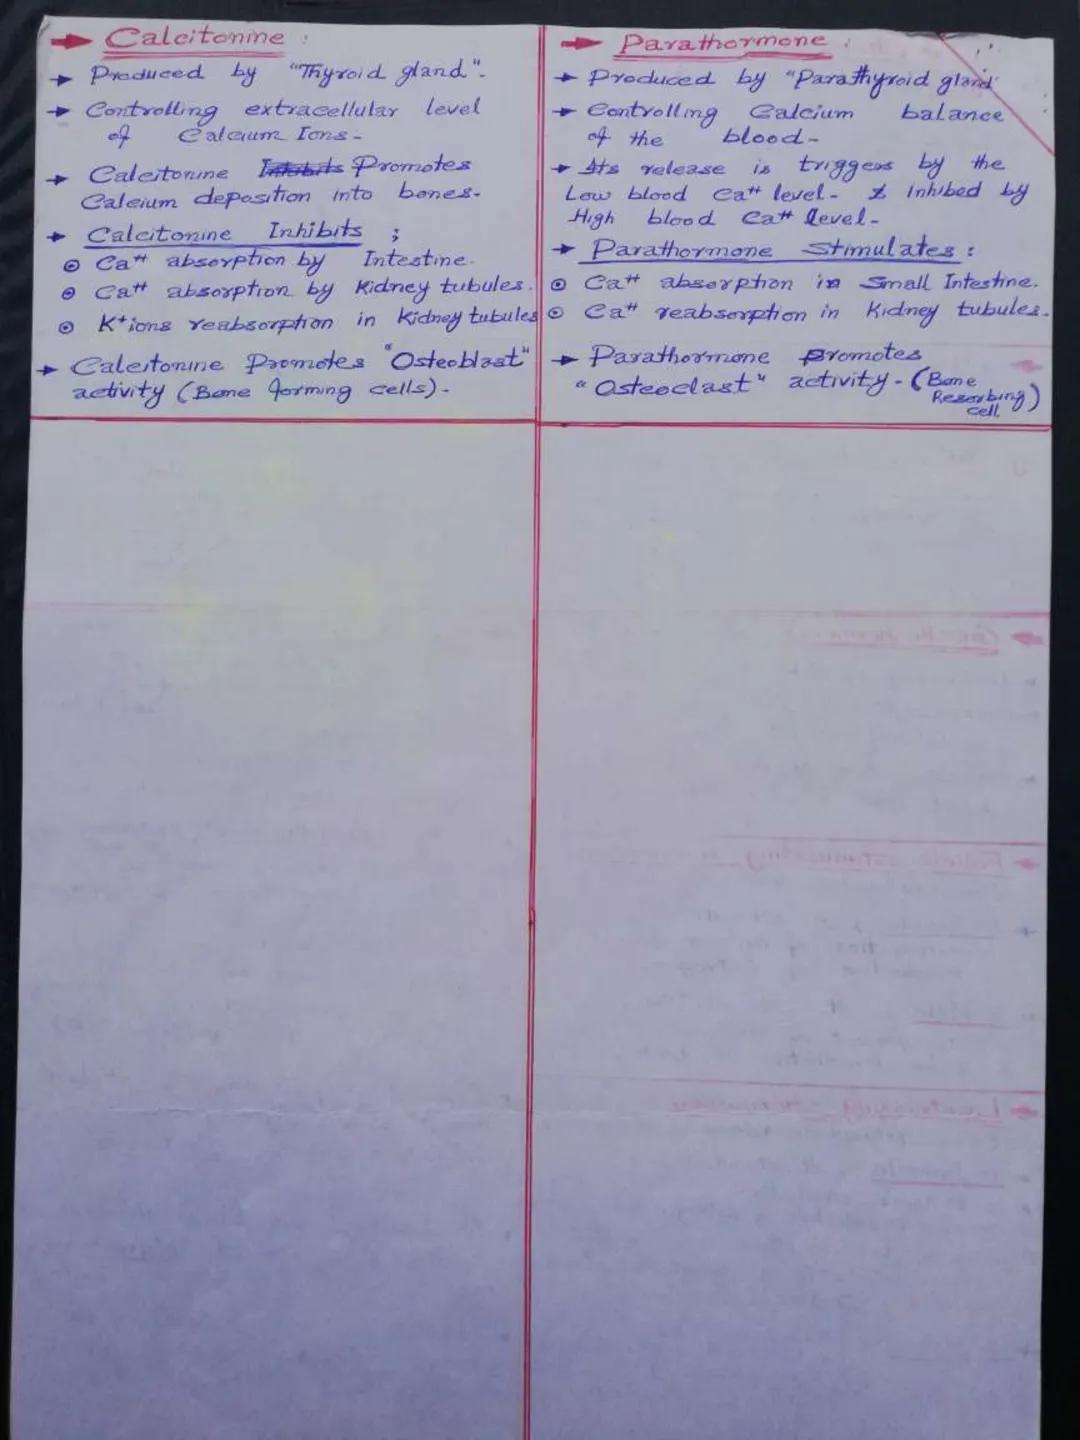 → Calcitonine :
→ Produced by "Thyroid gland".
→ Controlling extracellular level
of Calcium Ions-
→ Calcitonine Inhibits Promotes
Calcium deposition into bones-
→ Calcitonine Inhibits ;
⊙ Ca⁺⁺ absorption by Intestine.
⊙ Ca⁺⁺ absorption by Kidney tubules.
⊙ K⁺ions reabsorption in Kidney tubules
→ Calcitonine Promotes "Osteoblast"
activity (Bone forming cells)-
→ Parathormone :
→ Produced by "Parathyroid gland"
→ Controlling Calcium balance
of the blood-
→ Its release is triggers by the
Low blood Ca⁺⁺ level- & Inhibed by
High blood Ca⁺⁺ level-
→ Parathormone Stimulates :
⊙ Ca⁺⁺ absorption in Small Intestine.
⊙ Ca⁺⁺ reabsorption in Kidney tubules.
→ Parathormone Promotes
"Osteoclast" activity- (Bone
Resorbing
cell)